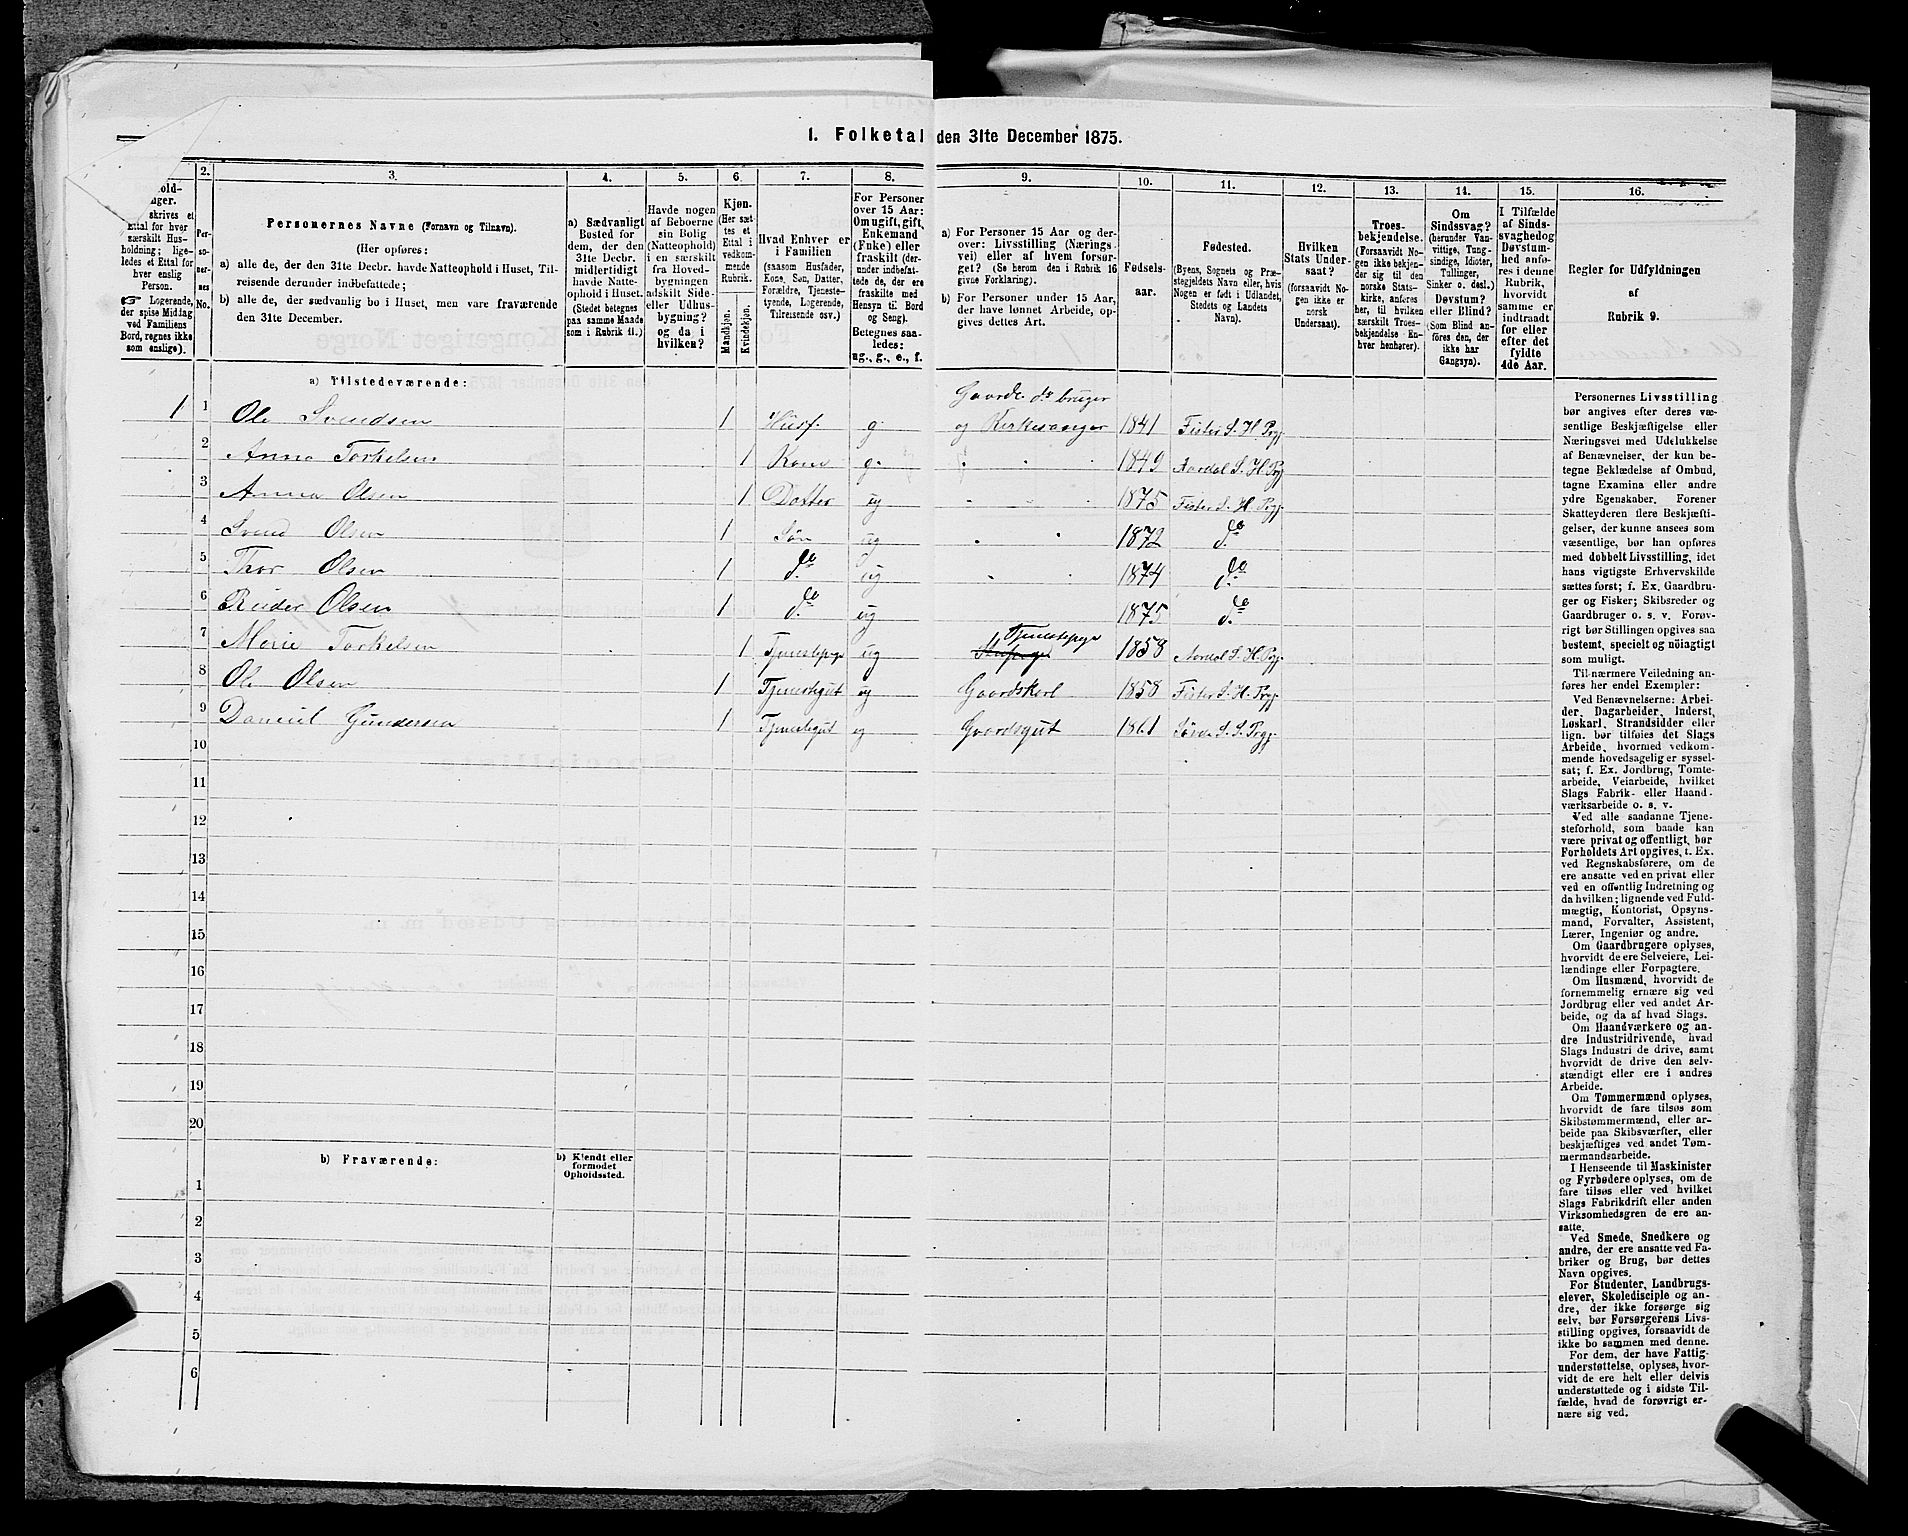 1. Folketal den 31te December 1875.
1. 2. 3. 4. 5. 6. 7. 8. 9. 10. 11. 12. 13. 14. 15. 16.
hold-
nger.
skrives et
Ettal for hver
særskilt Hus-
holdning; lige-
ledes et Ettal for
hver enslig
Person.
☞ Logerende,
der spise Middag
ved Familiens
Bord, regnes ikke
som enslige).
Per-
so-
ner-
nes
No.
Personernes Navne (Fornavn og Tilnavn).
(Her opføres:
a) alle de, der den 31te Decbr. havde Natteophold i Huset, Til-
reisende derunder indbefattede;
b) alle de, der sædvanlig bo i Huset, men vare fraværende
den 31te December.
a) Sædvanligt
Bosted for
dem, der den
31te Decbr.
midlertidigt
havde Natte-
ophold i Huset.
(Stedet betegnes
paa samme Maade
som i Rubrik 11.)
Havde nogen
af Beboerne
sin Bolig
(Natteophold)
i en særskilt
fra Hoved-
bygningen
adskilt Side-
eller Udhus-
bygning?
og da i
hvilken?
Kjøn.
(Her sæt-
tes et
Ettal i
vedkom-
mende
Rubrik.
Mandkjøn.
Kvindekjøn.
Hvad Enhver er
i Familien
(saasom Husfader,
Kone, Søn, Datter,
Forældre, Tjeneste-
tyende, Logerende,
Tilreisende osv.)
For Personer
over 15 Aar:
Om ugift, gift,
Enkemand
(Enke) eller
fraskilt (der-
under indbefat-
tede de, der ere
fraskilte med
Hensyn til Bord
og Seng).
Betegnes saa-
ledes:
ug., g., e., f.
a) For Personer 15 Aar og der-
over: Livsstilling (Nærings-
vei) eller af hvem forsør-
get? (Se herom den i Rubrik 16
givne Forklaring).
b) For Personer under 15 Aar,
der have lønnet Arbeide, op-
gives dettes Art.
Fødsels-
aar.
Fødested.
(Byens, Sognets og Præ-
stegjeldets Navn eller, hvis
Nogen er født i Udlandet,
Stedets og Landets
Navn).
Hvilken
Stats Under-
saat?
(forsaavidt No-
gen ikke er
norsk
Undersaat).
Troes-
bekjendelse.
(Forsaavidt No-
gen ikke bekjen-
der sig til den
norske Stats-
kirke, anføres
her, til hvilken
særskilt Troes-
bekjendelse En-
hver henhører).
Om
Sindssvag?
(herunder Van-
vittige, Idioter,
Tullinger,
Sinker o. desl.)
Døvstum?
eller Blind?
(Som Blind an-
føres den, der
ikke har
Gangsyn).
I Tilfælde
af Sinds-
svaghed og
Døvstum-
hed anfø-
res i denne
Rubrik,
hvorvidt
samme er
indtraadt
før eller
efter det
fyldte
4de Aar.
Regler for Udfyldningen
af
Rubrik 9.
a) Tilstedeværende:
Gaardb. ds bruger
1 1 Ole Svendsen 1 Husf. g. og Kirkesanger 1841 Fister S. H. Prgj.
2 Anna Torkelsen 1 Kone g. 1849 Aardal S. H. Prgj
3 Anna Olsen 1 Datter ug 1875 Fister S. H. Prgj.
4 Svend Olsen 1 Søn ug 1872 do
5 Thor Olsen 1 do ug 1874 do
6 Reider Olsen 1 do ug 1875 do
Tjenestepige
7 Marie Torkelsen 1 Tjenestepige ug 1858 Aardal S. H. Prgj.
8 Ole Olsen 1 Tjenestegut ug Gaardskarl 1858 Fister S. H. Prgj.
9 Daniel Gundersen 1 Tjenestegut ug Gaardsgut 1861 S. S. Prgj.
10
11
12
13
14
15
16
17
18
19
20
b) Fraværende:
b) Kjendt eller
formodet
Opholdssted.
1
2
3
4
5
6
Personernes Livsstilling
bør angives efter deres væ-
sentlige Beskjæftigelse eller
Næringsvei med Udelukkelse
af Benævnelser, der kun be-
tegne Beklædelse af Ombud,
tagne Examina eller andre
ydre Egenskaber. Forener
Skatteyderen flere Beskjæfti-
gelser, der kunne ansees som
væsentlige, bør han opføres
med dobbelt Livsstilling, idet
hans vigtigste Erhvervskilde
sættes først; f. Ex. Gaardbru-
ger og Fisker; Skibsreder og
Gaardbruger o. s. v. Forøv-
rigt bør Stillingen opgives saa
bestemt, specielt og nöiagtigt
som muligt.
Til nærmere Veiledning an-
føres her endel Exempler:
Ved Benævnelserne: Arbei-
der, Dagarbeider, Inderst,
Løskarl, Strandsidder eller
lign. bør tilføies det Slags
Arbeide, hvormed vedkom-
mende hovedsagelig er syssel-
sat; f. Ex. Jordbrug, Tomte-
arbeide, Veiarbeide, hvilket
Slags Fabrik- eller Haand-
værksarbeide o. s. v.
Ved alle saadanne Tjene-
steforhold, som baade kan
være privat og offentligt, bør
Forholdets Art opgives, t. Ex.
ved Regnskabsførere, om de
ere ansatte ved en privat eller
ved en offentlig Indretning og
da hvilken; lignende ved Fuld-
mægtig, Kontorist, Opsyns-
mand, Forvalter, Assistent,
Lærer, Ingeniør og andre.
Om Gaardbrugere oplyses,
hvorvidt de ere Selveiere, Lei-
lændinge eller Forpagtere.
Om Husmænd, hvorvidt de
fornemmelig ernære sig ved
Jordbrug eller ved andet Ar-
beide, og da af hvad Slags.
Om Haandværkere og an-
dre Industridrivende, hvad
Slags Industri de drive, samt
hvorvidt de drive den selv-
stændigt eller ere i andres
Arbeide.
Om Tømmermænd oplyses,
hvorvidt de fare tilsøs som
Skibstømmermænd, eller ar-
beide paa Skibsværfter, eller
beskjæftiges ved andet Tøm-
mermandsarbeide.
I Henseende til Maskinister
og Fyrbødere oplyses, om de
fare tilsøs eller ved hvilket
Slags Fabrikdrift eller anden
Virksomhedsgren de ere an-
satte.
Ved Smede, Snedkere og
andre, der ere ansatte ved Fa-
briker og Brug, bør dettes
Navn opgives.
For Studenter, Landbrugs-
elever, Skoledisciple og an-
dre, der ikke forsørge sig
selv, bør Forsørgerens Livs-
stilling opgives, forsaavidt de
ikke bo sammen med denne.
For dem, der have Fattig-
understøttelse, oplyses, hvor-
vidt de ere helt eller delvis
understøttede og i sidste Til-
fælde, hvad de forøvrigt er-
nære sig ved.